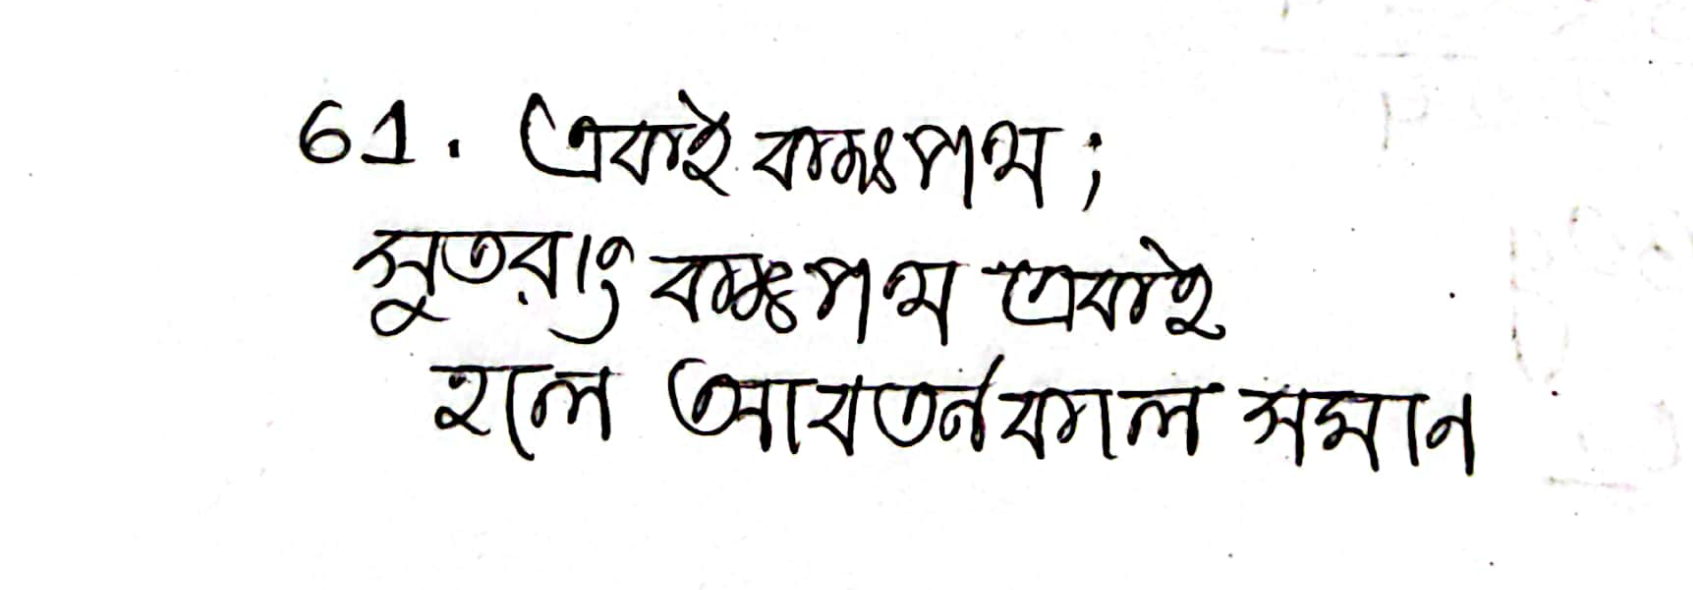 61. একই কক্ষপথ ;
সুতরাং কক্ষপথ একই
হলে আবর্তনকাল সমান